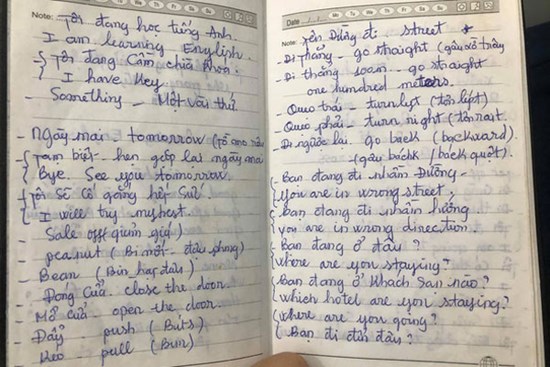 Note: Tôi đang học tiếng Anh.
I am learning English.
- Tôi đang cầm chìa khóa.
I have key
- Something - Một vài thứ
- Ngày mai tomorrow
- Tạm biệt - hẹn gặp lại ngày mai
Bye. See you tomorrow.
- Tôi sẽ cố gắng hết sức.
I will try my best.
- Sale off giảm giá)
peanut (Bí nớt - đậu phọng)
- Bean (Bin hạt đậu)
- Đóng cửa. close the door.
- Mở cửa . open the door.
- Đẩy - push (Búts)
- Kéo - pull (Bun)
Date
Note: street
- Đi thẳng - go straight
- Đi thẳng 100m - go straight
one hundred meters.
- Quẹo trái - turn left (tơn lépt)
- Quẹo phải - turn right
- Đi ngược lại. go back (backward).
(gâu bách / bách quợt).
- Bạn đang đi nhầm Đường -
You are in wrong street,
- Bạn đang đi nhầm hướng.
you are in wrong direction.
- Bạn đang ở đâu ?
where are you staying?
- Bạn đang ở khách sạn nào?
which hotel are you staying?
- where are you going?
Bạn đi đến đâu?